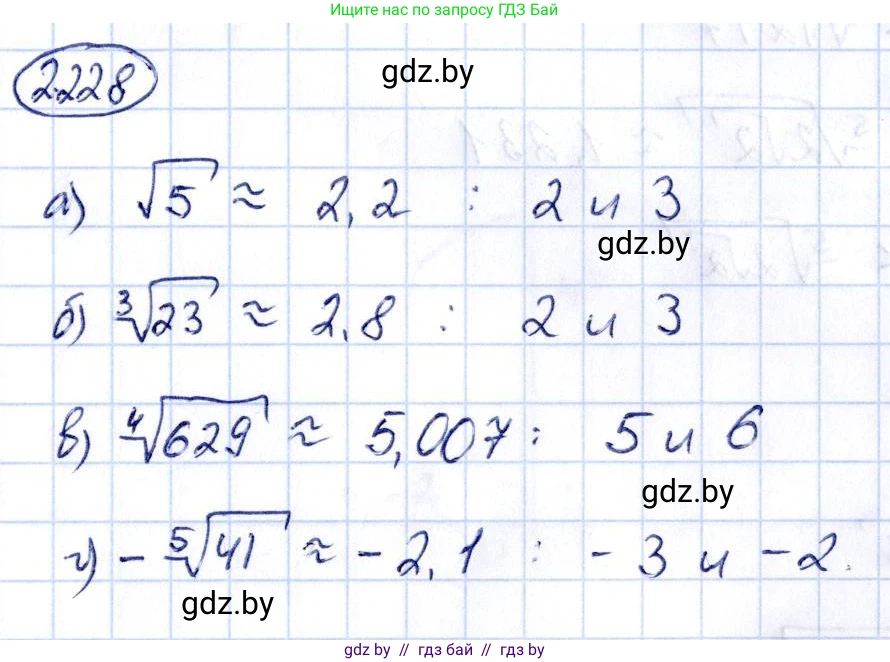 Ищите нас по запросу ГДЗ Бай
2.228
gdz.by
а) √5 ≈ 2,2 : 2 и 3
gdz.by
б) ∛23 ≈ 2,8 : 2 и 3
в) ∜629 ≈ 5,007 : 5 и 6
gdz.by
г) - ⁵√41 ≈ -2,1 : -3 и -2.
gdz.by
gdz by // гдз бай // gdz by